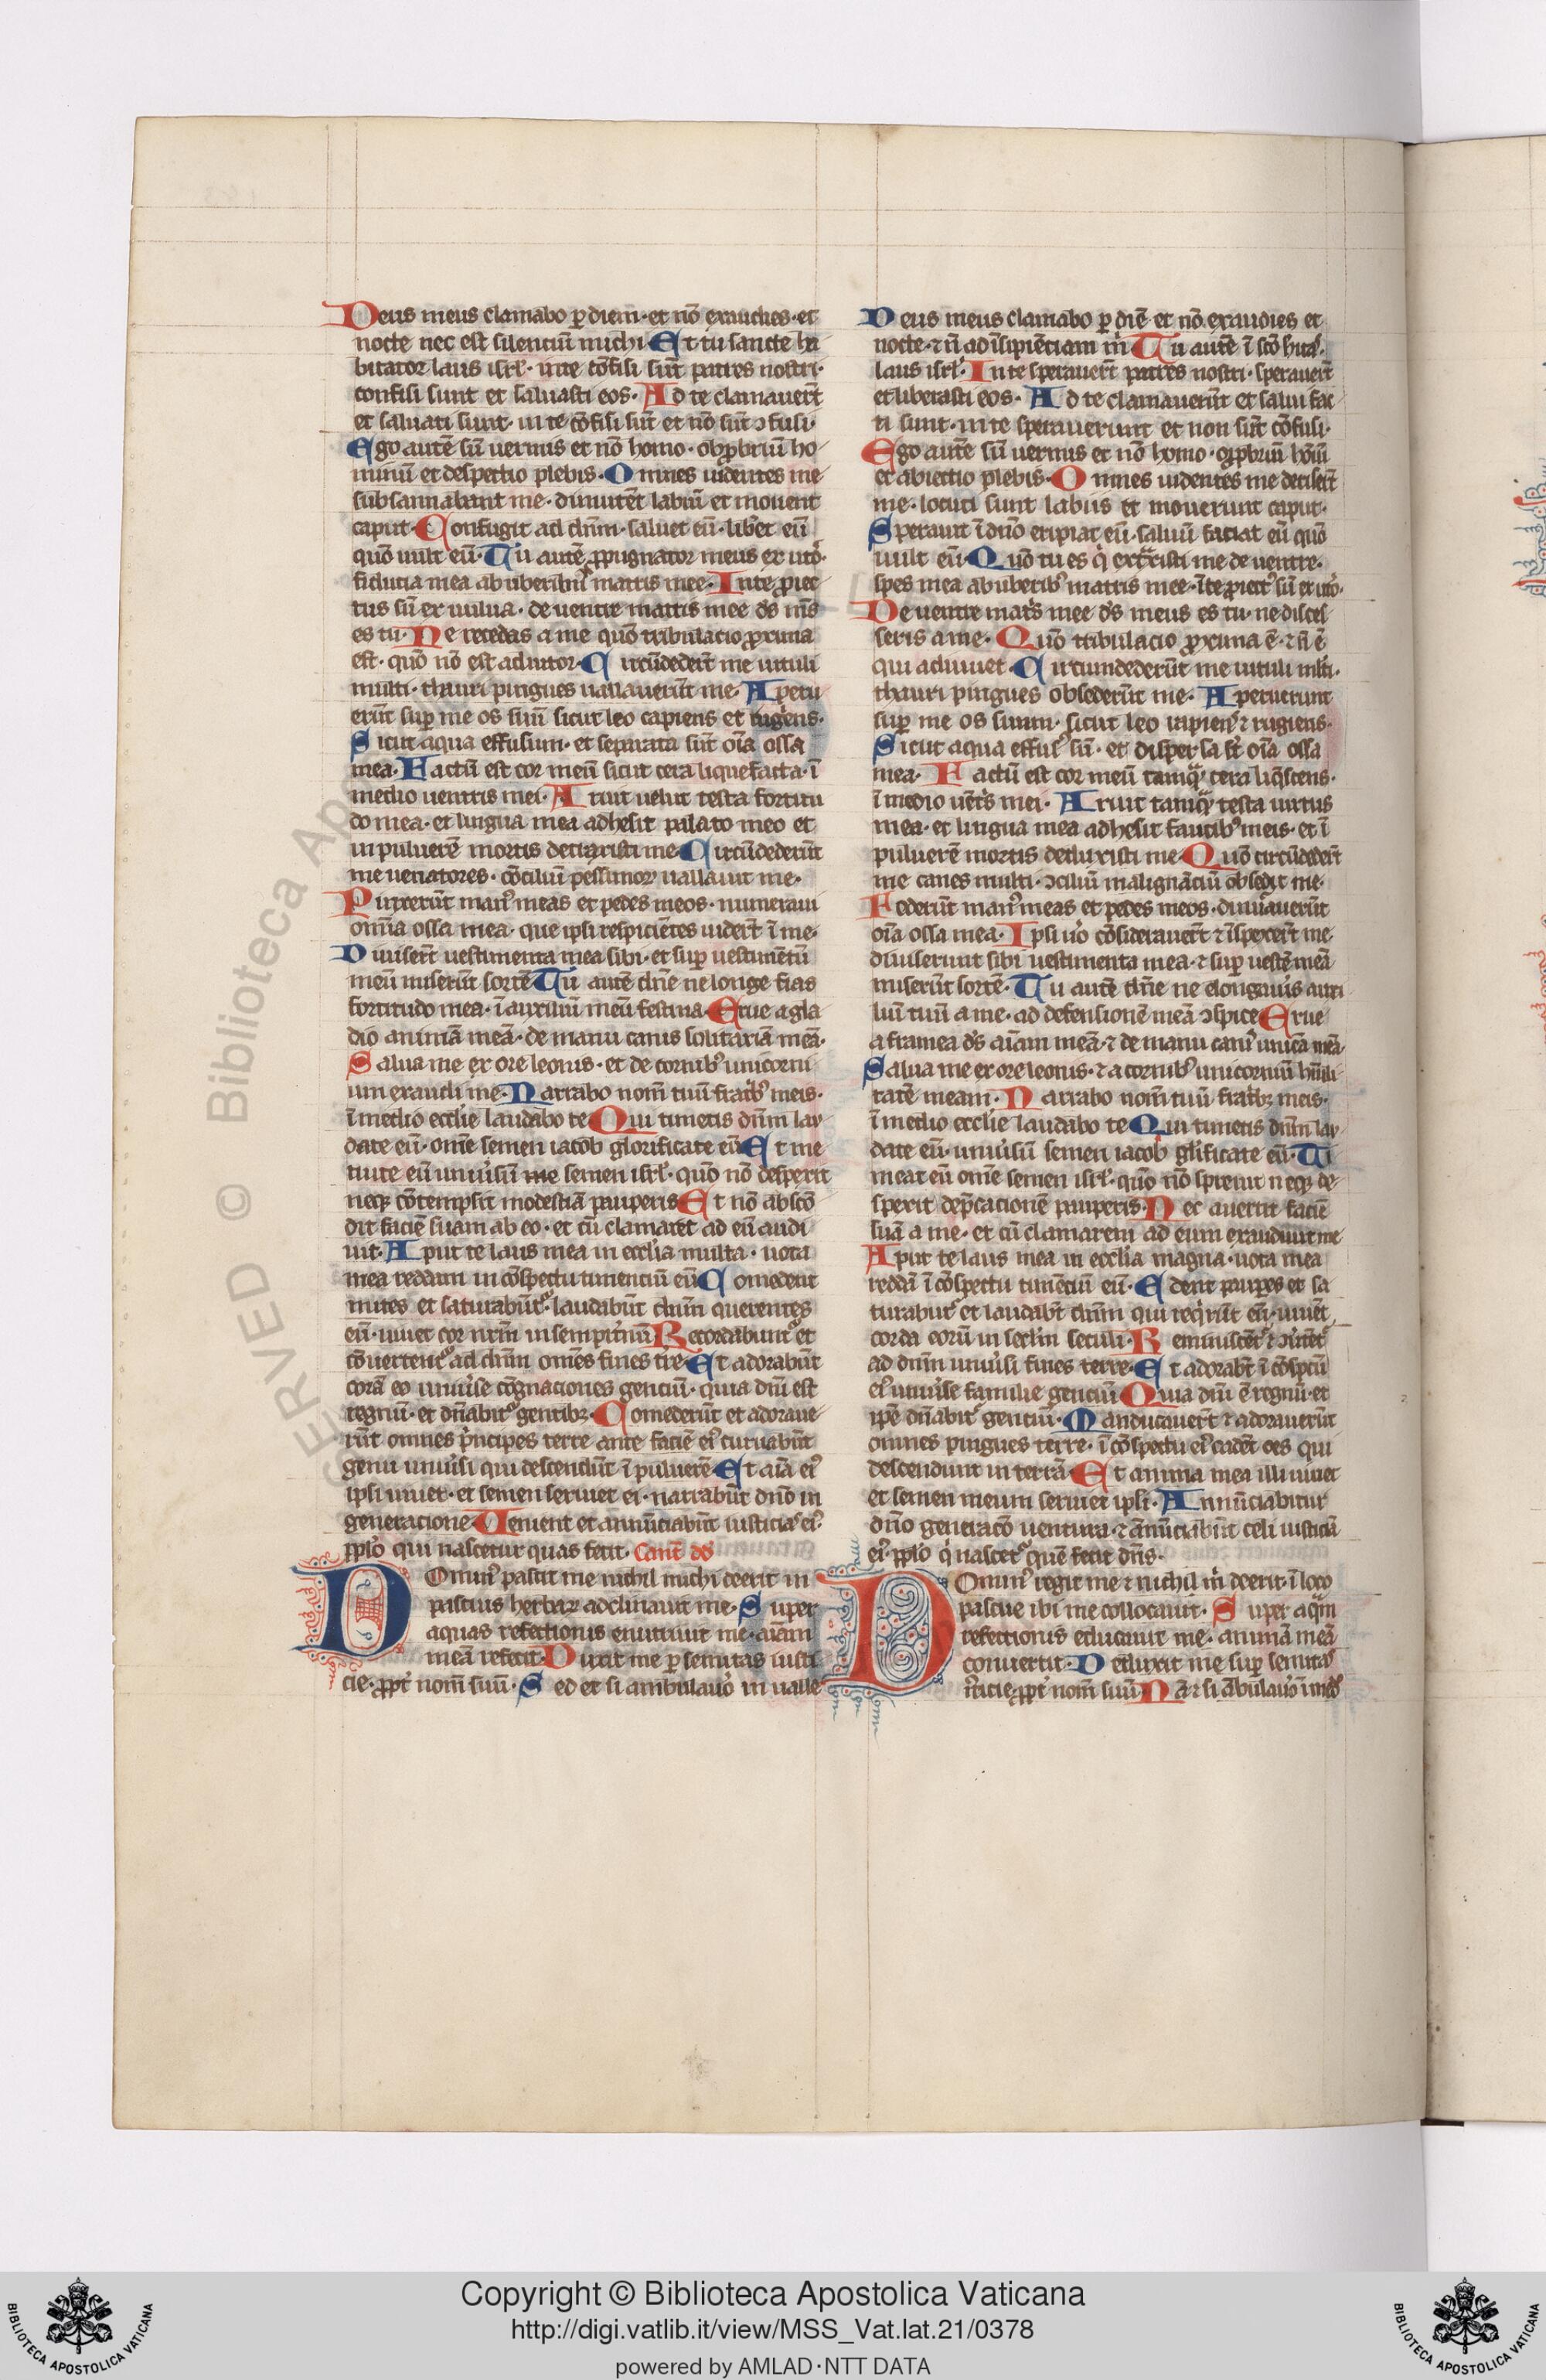 Deus meus clamabo ꝑ diem·et nō exaudies·et
nocte nec est silenciū michi·Et tu sancte ha
bitator laus isrl̕· in te cōfisi sūt patres nostri·
confisi sunt et saluasti eos·Ad te clamauerūt
et saluati sunt· in te cōfisi sūt et nō sūt ɔfusi·
Ego autē sū uermis et nō homo·obꝓbriū ho
minū et despectio plebis·Omnes uidentes me
subsannabant me·dimiserūt labiū et mouent
caput·Confugit ad dn̄m·saluet eū·liberet eū
quō uult eū·Tu autē ꝓpugnator meus ex utō·
fiducia mea ab uberibus matris mee·In te ꝓiec
tus sū ex uulua·de uentre matris mee ds̄ ms̄
es tu·Ne recedas a me quō tribulacio ꝓxima
est·quō nō est adiutor·Circūdederūt me uituli
multi·thauri pingues uallauerūt me·Aperu
erūt suꝑ me os suū sicut leo capiens et rugiens·
Sicut aqua effusum·et separata sūt oīa ossa
mea·Factū est cor meū sicut cera liquefacta·ī
medio uentris mei·Aruit uelut testa fortitu
do mea·et lingua mea adhesit palato meo et
in puluerē mortis detraxisti me·Circūdederūt
me uenatores·cōciliū pessimoꝝ uallauit me·
Finxerūt manꝰ meas et pedes meos·numeraui
omīa ossa mea·que ipsi respiciētes uiderūt ī me·
Diuiserūt uestimenta mea sibi·et suꝑ uestimētū
meū miserūt sortē·Tu autē dn̄e ne longe fias
fortitudo mea·ī auxiliū meū festina·Erue a gla
dio animā meā·de manu canis solitariā meā·
Salua me ex ore leonis·et de cornibꝰ unicorni
um exaudi me·Narrabo nom̄ tuū fratribꝰ meis·
ī medio ecclie laudabo te·Qui timetis dn̄m lau
date eū·om̄e semen iacob glorificate eū·Et me
tuite eū uniūsū me semen isrl̕·quō nō despexit
neqꝫ cōtempsit modestiā pauperis·Et nō abscō
dit faciē suam ab eo·et cū clamaret ad eū audi
uit·Aput te laus mea in ecclīa multa·uota
mea reddam in cōspectu timenciū eū·Comedent
mites et saturabūtꝰ·laudabūt dn̄m querentes
eū·uiuet cor nrm̄ in sempitnū·Recordabuntꝰ et
cōuertentꝰ ad dn̄m omēs fines tr̄e·Et adorabūt
corā eo uniūse cōgnaciones genciū·quia dn̄i est
regnū·et dn̄abitꝰ gentibꝫ·Comederūt et adoraue
rūt omnes p̄ncipes terre ante faciē eiꝰ curuabūt
genu uniūsi qui descendūt ī puluerē·Et aīa eiꝰ
ipsi uiuet·et semen seruiet ei·narrabūt dn̄o in
generacione·Uenient et annūciabūt iusticiā eiꝰ·
pplō qui nascetur quas fecit·Cant̄ dd̄
Dominꝰ pascit me nichil michi deerit in
pascuis herbaꝝ adclinauit me·Super
aquas refectionis enutriuit me·aīam
meā refecit·Duxit me ꝑ semitas iusti
cie·ꝓpt̄ nom̄ suū·Sed et si ambulauō in ualle
Deus meus clamabo ꝑ diē et nō exaudies et
nocte·⁊ n̄ ad īsipiēciam m̄·Tu autē ī scō hitas·
laus isrl̕·In te sperauerūt patres nostri·sperauerūt
et liberasti eos·Ad te clamauerūt et salui fac
ti sunt·in te sperauerunt et non sūt cōfusi·
Ego autē sū uermis et nō homo·oꝓbriū hoīm
et abiectio plebis·Omnes uidentes me deriserūt
me·locuti sunt labiis et mouerunt caput·
Sperauit ī dn̄o eripiat eū·saluū faciat eū quō
uult eū·Quō tu es q̄ extraxisti me de uentre·
spes mea ab uberibꝰ matris mee·ī te ꝓiectꝰ sū ex utō·
De uentre matris mee ds̄ meus es tu·ne disces
seris a me·Quō tribulacio ꝓxima ē·⁊ n̄ ē
qui adiuuet·Circumdederūt me uituli mlti·
thauri pingues obsederūt me·Aperuerunt
suꝑ me os suum·sicut leo rapiens ⁊ rugiens·
Sicut aqua effusꝰ sū·et dispersa st̄ oīa ossa
mea·Factū est cor meū tamqȝ cera liq̄scens·
ī medio uētris mei·Aruit tamqȝ testa uirtus
mea·et lingua mea adhesit faucibꝰ meis·et ī
puluerē mortis deduxisti me·Quō circūdederūt
me canes multi·ɔciliū malignāciū obsedit me·
Foderūt manꝰ meas et pedes meos·dinūauerūt
oīa ossa mea·Ipsi uō cōsiderauerūt ⁊ īspexerūt me
diuiserunt sibi uestimenta mea·⁊ suꝑ uestē meā
miserūt sortē·Tu autē dn̄e ne elongaueris auxi
liū tuū a me·ad defensionē meā ɔspice·Erue
a framea ds̄ aīam meā·⁊ de manu canis unicā meā·
Salua me ex ore leonis·⁊ a cornibꝰ unicorniū humili
tatē meam·Narrabo nom̄ tuū fratribꝫ meis·
ī medio ecclie laudabo te·Qui timetis dn̄m lau
date eū·uniūsū semen iacob glificate eū·Ti
meat eū om̄e semen isrl̕·quō nō spreuit neqꝫ de
spexit dep̄cacionē pauperis·Nec auertit faciē
suā a me·et cū clamarem ad eum exaudiuit me
Aput te laus mea in ecclīa magna·uota mea
reddā ī cōspectu timēciū eū·Edent pauꝑes et sa
turabūtꝰ et laudabūt dn̄m qui req̄rūt eū·uiuēt
corda eorū in seclm̄ seculi·Reminiscētꝰ ⁊ ɔūtētꝰ
ad dn̄m uniūsi fines terre·Et adorabt̄ ī cōspectu
eiꝰ uniūse familie genciū·Quia dn̄i ē regnū·et
ipē dn̄abitꝰ genciū·Manducauerūt ⁊ adorauerūt
omnes pingues terre·ī cōspectu eiꝰ cadēt oēs qui
descendunt in terrā·Et anima mea illi uiuet
et semen meum seruiet ipsi·Annūciabitur
dn̄o generacō uentura·⁊ ānūciabūt celi iusticiā
eiꝰ·pplō q̄ nascetꝰ quē fecit dn̄s·
Dominꝰ regit me ⁊ nichil m̄ deerit·ī loco
pascue ibi me collocauit·Super aq̄m
refectionis educauit me·animā meā
conuertit·Deduxit me suꝑ semitas
iusticie ꝓpt̄ nom̄ suū·Nā ⁊ si ābulauō ī medō
Copyright © Biblioteca Apostolica Vaticana
http://digi.vatlib.it/view/MSS_Vat.lat.21/0378
powered by AMLAD·NTT DATA